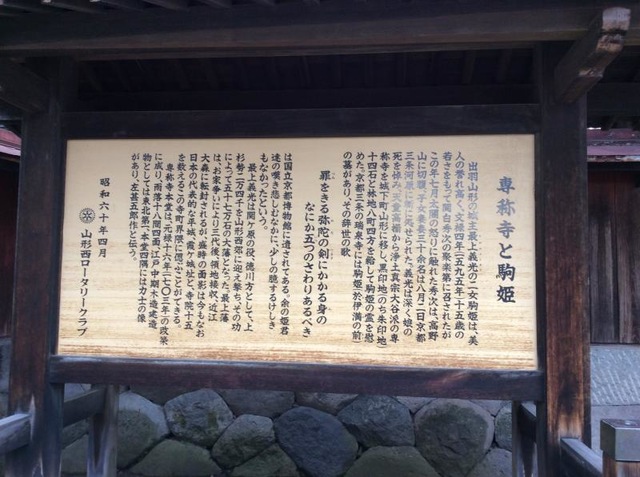 専称寺と駒姫
出羽山形の城主最上義光の二女駒姫は、美
人の誉れ高く、文禄四年(一五九五年)十五歳の
若さをもって関白秀次の聚楽第に召されたが
この年七月太閤の怒りに触れた秀次は、高野
山に切腹、子女妻妾三十余名は八月二日京都
三条河原に於て果てせられた。義光は深く娘の
死を悼み、天童高擶から浄土真宗大谷派の専
称寺を城下町山形に移し、黒印地(のち朱印地)
十四石と林地八町四方を給して駒姫の霊を慰
めた。京都三条の瑞泉寺には駒姫於伊満の前)
の墓があり、その辞世の歌
罪をきる弥陀の剣にかかる身の
なにか五つのさわりあるべき
は国立京都博物館に遺されてある。余の姫君
達の嘆き悲しむなかに、少しの臆するけしき
もなかったという。
最上義光は関ケ原の役、徳川方として、上
杉勢二万四千を山形西郊に迎え撃ち、その功
によって五十七万石の大藩となった。最上藩
は、お家争いにより三代後、領地接収、近江
大森に転封されるが、盛時の面影は今もなお
日本の代表的な平城、霞ケ城址と、寺院十五
を数えるこの寺町界隈に偲ぶことができる。
専称寺本堂は、元禄十六年(一七〇三年)の改築
に成り、雨落十八間四面、江戸中期木造建造
物としては東北第一、本堂四隅には力士の像
があり、左甚五郎作と伝う。
昭和六十年四月
山形西ロータリークラブ